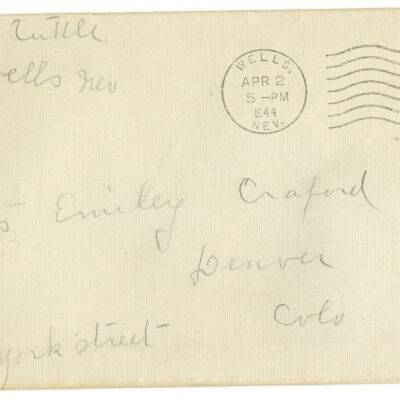 Tuttle
Wells Nev
WELLS,
APR 2
5-PM
1944
NEV.
Emiley Craford
Denver
Colo
York street